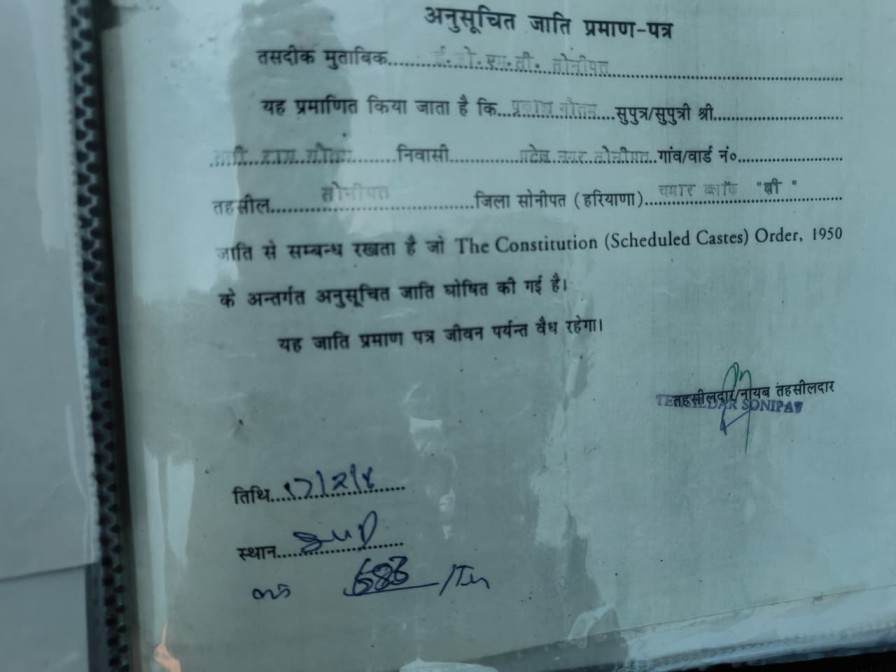 अनुसूचित जाति प्रमाण-पत्र
तसदीक मुताबिक.....ई.ओ.एम.सी. सोनीपत.....
यह प्रमाणित किया जाता है कि.....सुपुत्र/सुपुत्री श्री.....
.....निवासी.....पटेल नगर सोनीपत..गांव/वार्ड नं०.....
तहसील.....सोनीपत.....जिला सोनीपत (हरियाणा).....चमार काफ "बी"
जाति से सम्बन्ध रखता है जो The Constitution (Scheduled Castes) Order, 1950
के अन्तर्गत अनुसूचित जाति घोषित की गई है।
यह जाति प्रमाण पत्र जीवन पर्यन्त वैध रहेगा।
तहसीलदार/नायब तहसीलदार
TEHSILDAR SONIPAT
तिथि.....
स्थान.....
683